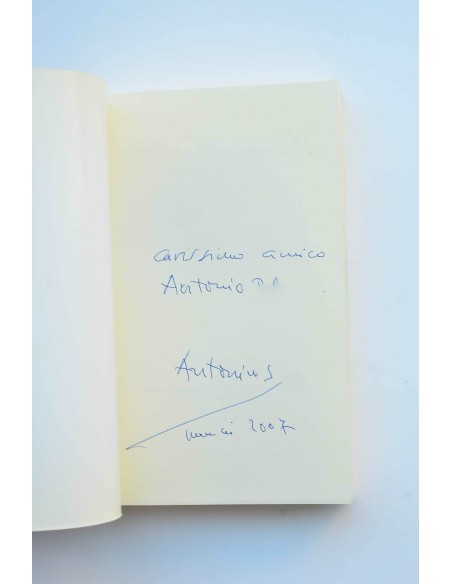 carissimo amico
Antonio
Antonius
2007